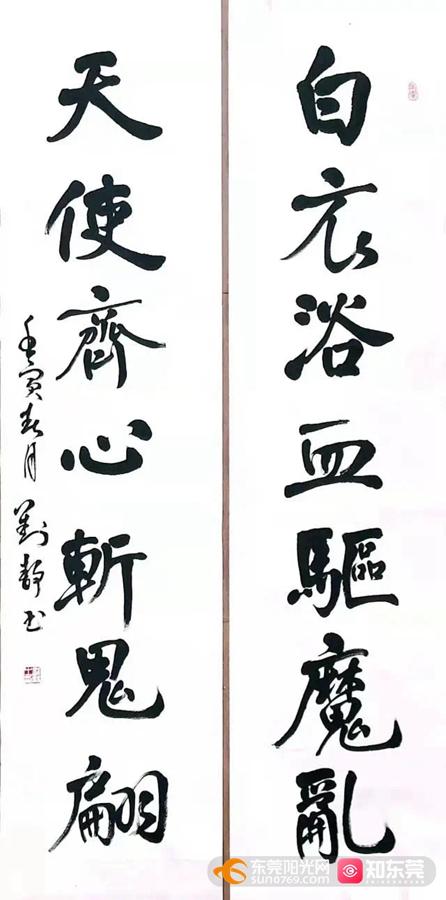 白衣浴血驅魔亂
天使齊心斬鬼翩
壬寅春月 劉靜书
东莞阳光网 sun0769.com 知东莞